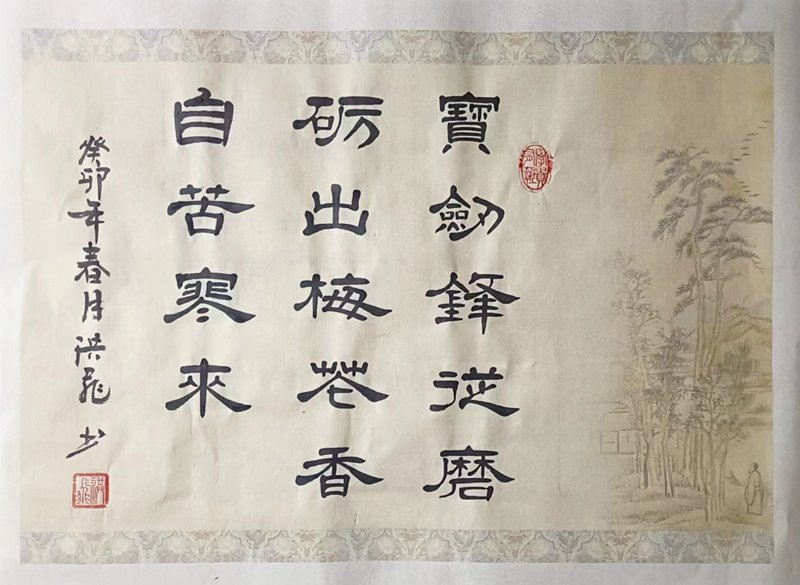 寶劍鋒從磨
砺出梅花香
自苦寒來
癸卯年春月洪飛书